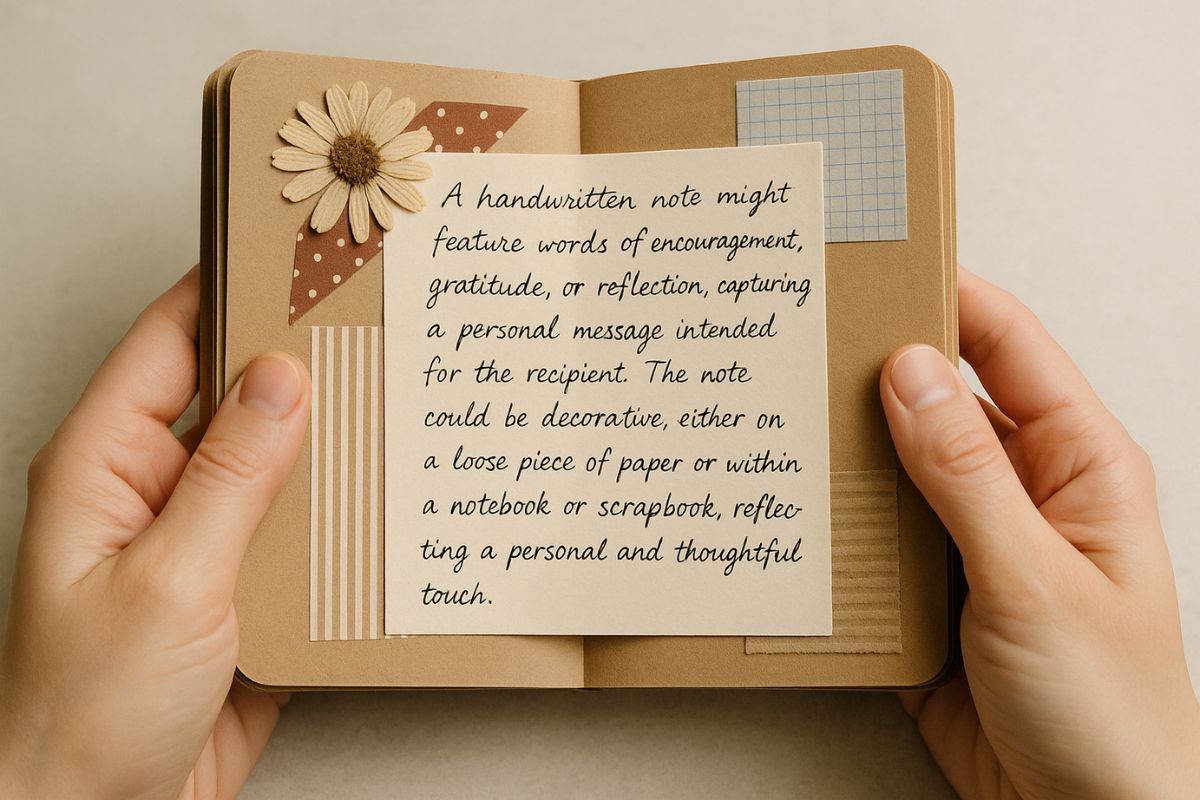 A handwritten note might
feature words of encouragement,
gratitude, or reflection, capturing
a personal message intended
for the recipient. The note
could be decorative, either on
a loose piece of paper or within
a notebook or scrapbook, reflec-
ting a personal and thoughtful
touch.